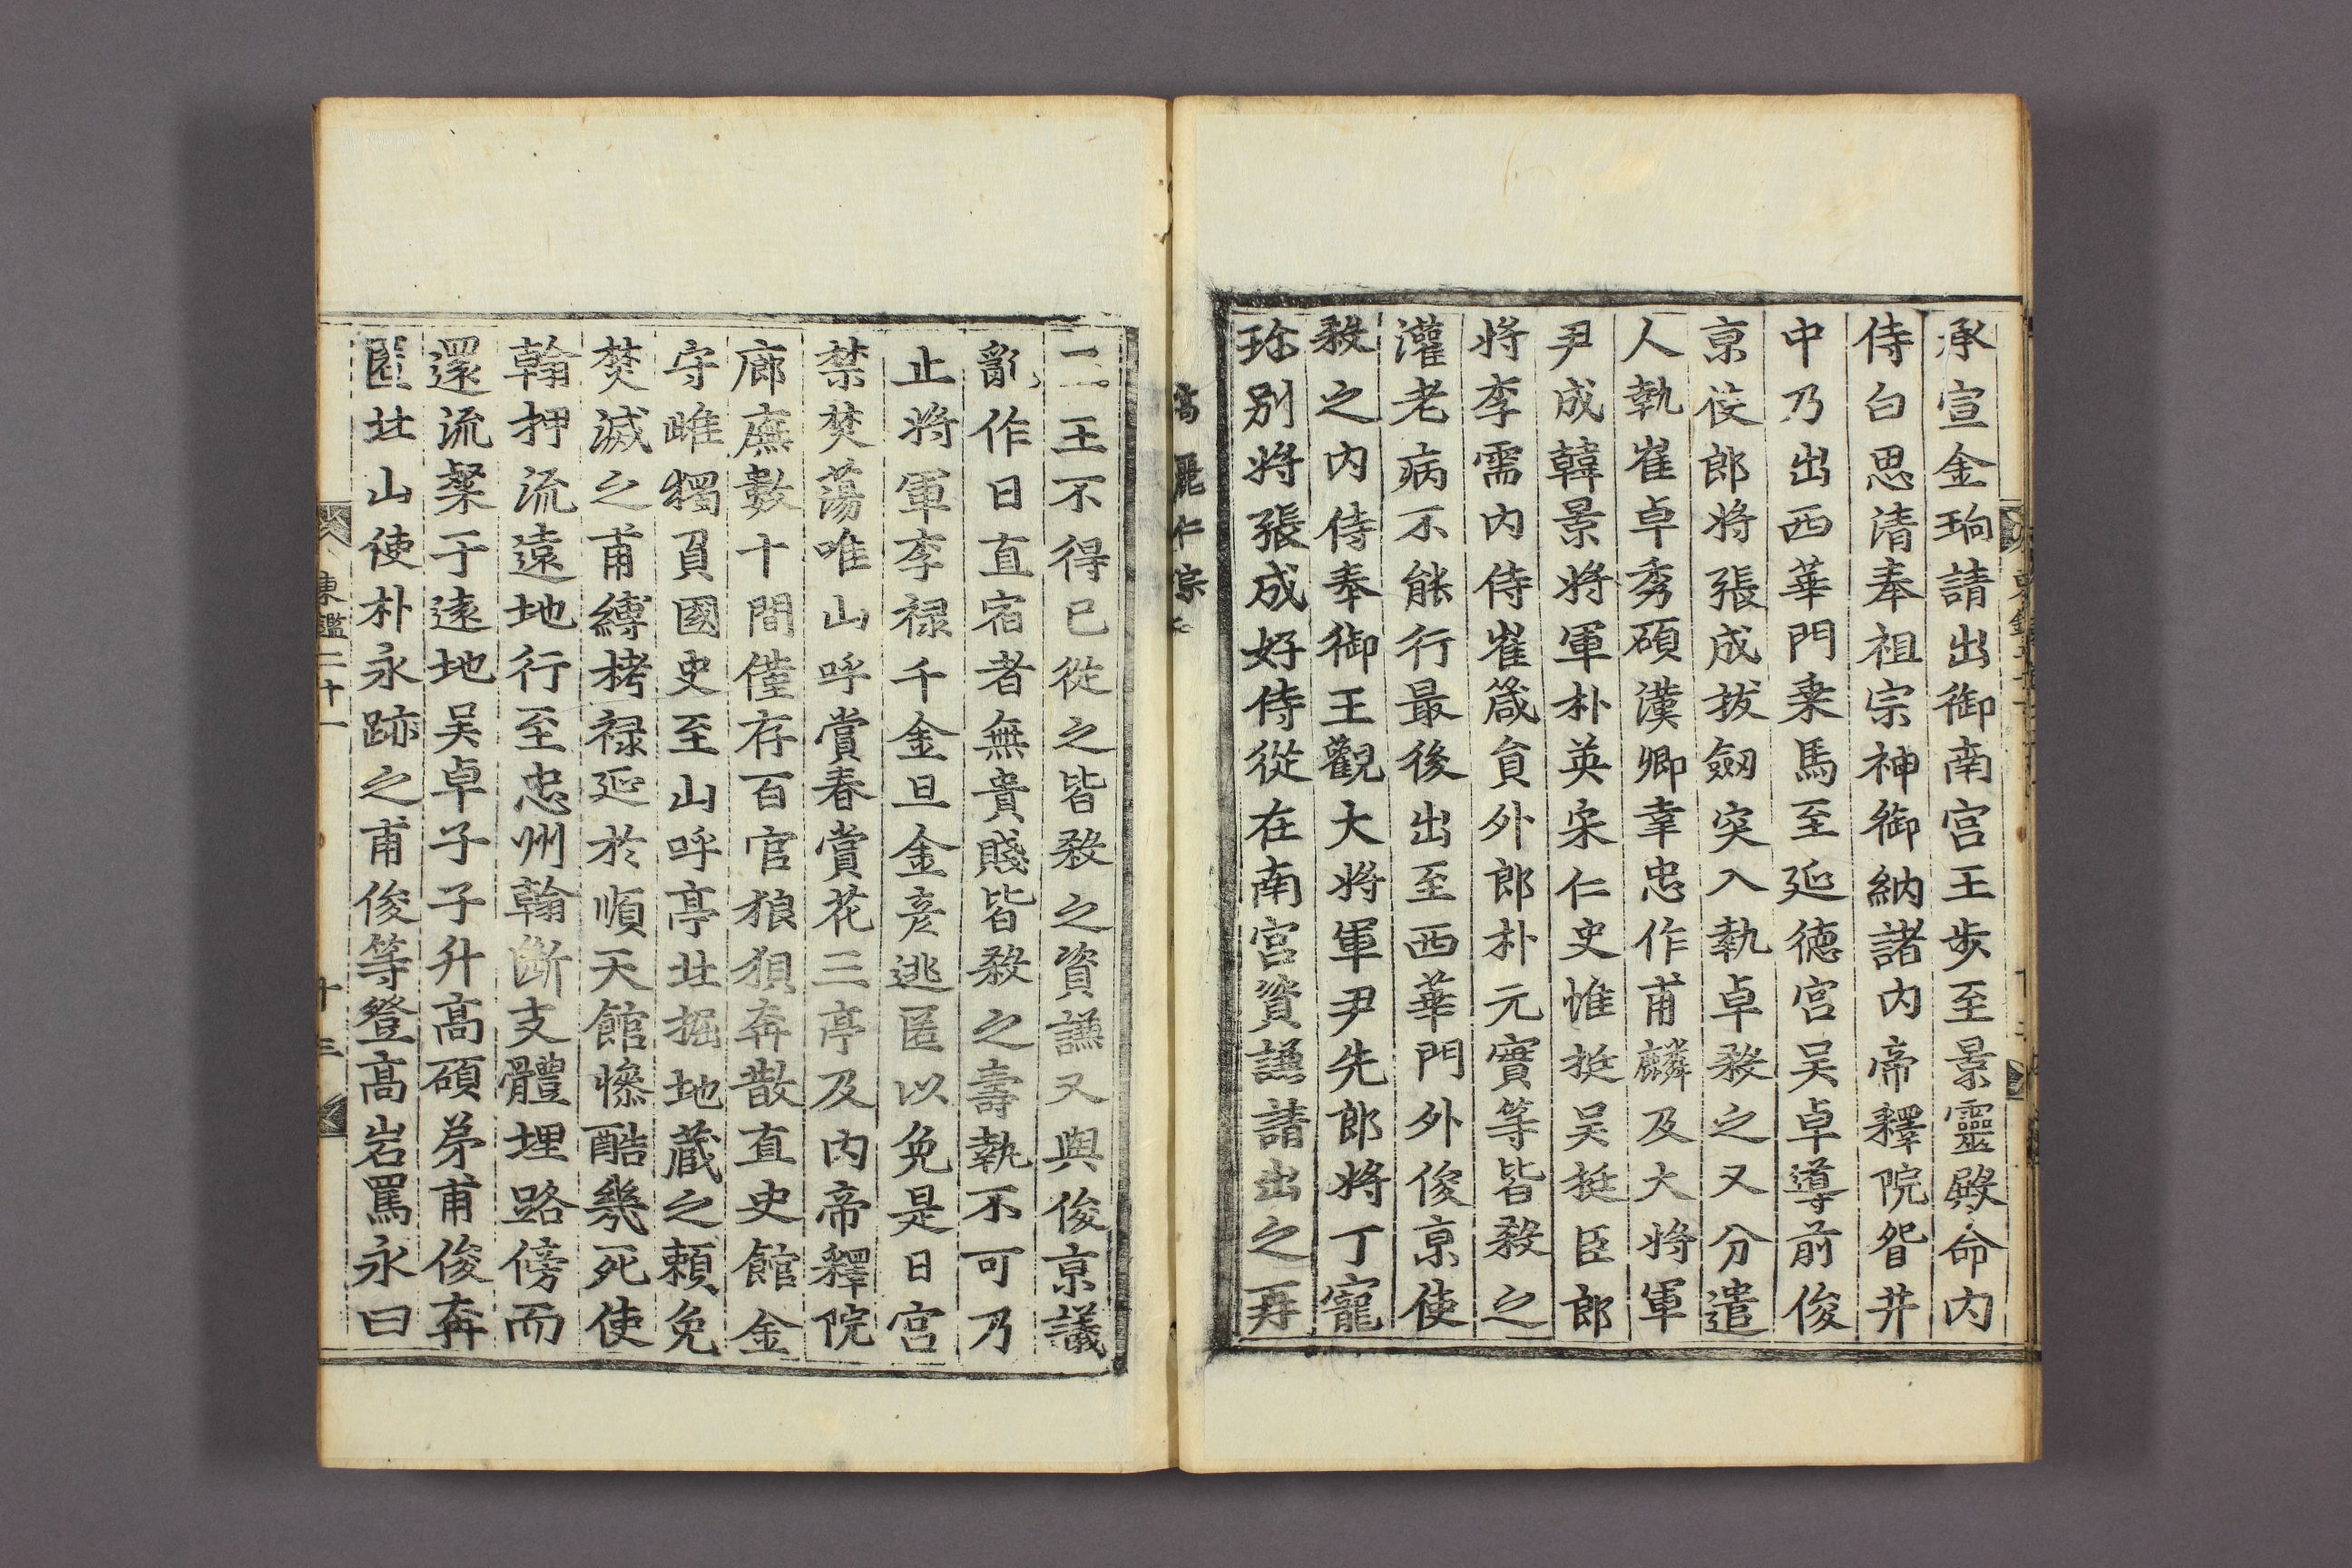 承宣金珦請出御南宮王步至景靈殿命内
侍白思清奉祖宗神御納諸内帝釋院眢井
中乃出西華門乘馬至延德宮吳卓導前俊
京使郎將張成拔劒突入執卓殺之又分遣
人執崔卓秀碩漢卿韋忠作甫麟及大將軍
尹成韓景將軍朴英宋仁史惟挺吳挺臣郎
將李需内侍崔箴貟外郎朴元實等皆殺之
灌老病不能行最後出至西華門外俊京使
殺之内侍奉御王觀大將軍尹先郎將丁寵
珍別將張成好侍從在南宮資謙請出之再
高麗仁宗
三王不得已從之皆殺之資謙又與俊京議
亂作日直宿者無貴賤皆殺之壽執不可乃
止將軍李禄千金旦金彦逃匿以免是日宮
禁焚蕩唯山呼賞春賞花三亭及内帝釋院
廊廡數十間僅存百官狼狽奔散直史館金
守雌獨負國史至山呼亭北掘地蔵之頼免
焚滅之甫縛栲禄延於順天館慘酷幾死使
翰押流遠地行至忠州翰斷支體埋路傍而
還流粲于遠地吳卓子子升高碩弟甫俊奔
匿北山使朴永跡之甫俊等登高岩罵永曰
東鑑二十一
十三